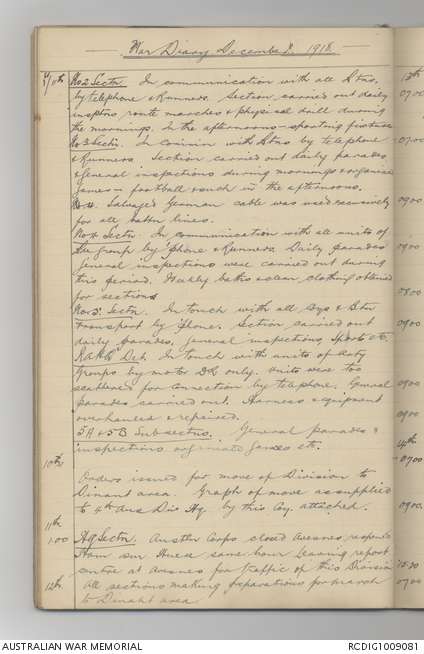 War Diary December 1918.
9/10th No 2 Sectn. In communication with all Stns.
by telephone & Runners. Section carried out daily
insptns, route marches & physical drill during
the mornings. In the afternoons - sporting fixtures
No 3 Sectn. In commn with Stns by telephone
& Runners. Section carried out daily parades
& General inspections during mornings & organised
games - football & such in the afternoons.
Salvaged German cable was used
for all lines.
No 4 Sectn. In communication with all units of
the group by 'phone & Runners. Daily parades
General inspections were carried out during
this period. Weekly baths & clean clothing obtained
for sections
No. 5 Sectn. In touch with all &
transport by phone. Section carried out
daily parades, general inspections, sports etc.
Det. In touch with units of Arty
Groups by motor D.R. only. Units were too
scattered for connection by telephone. General
parades carried out. Harness & equipment
overhauled & repaired.
5A & 5B Subsectns. General parades &
inspections organised games etc.
10th
Orders issued for move of Division to
Dinant area. Graph of move as supplied
to 4th Aus Div Hq by this Coy. attached.
11th
1.00 Hq Sectn. Austln Corps closed Avesnes reopened
Ham sur Heure same hour leaving report
centre at Avesnes for traffic of this Division
12th All sections making preparations for march
to Dinant area.
13th
0700
0700
0900
0900
0800
0900
0900
0900
14th
0700
0900.
0700
AUSTRALIAN WAR MEMORIAL
RCDIG1009081